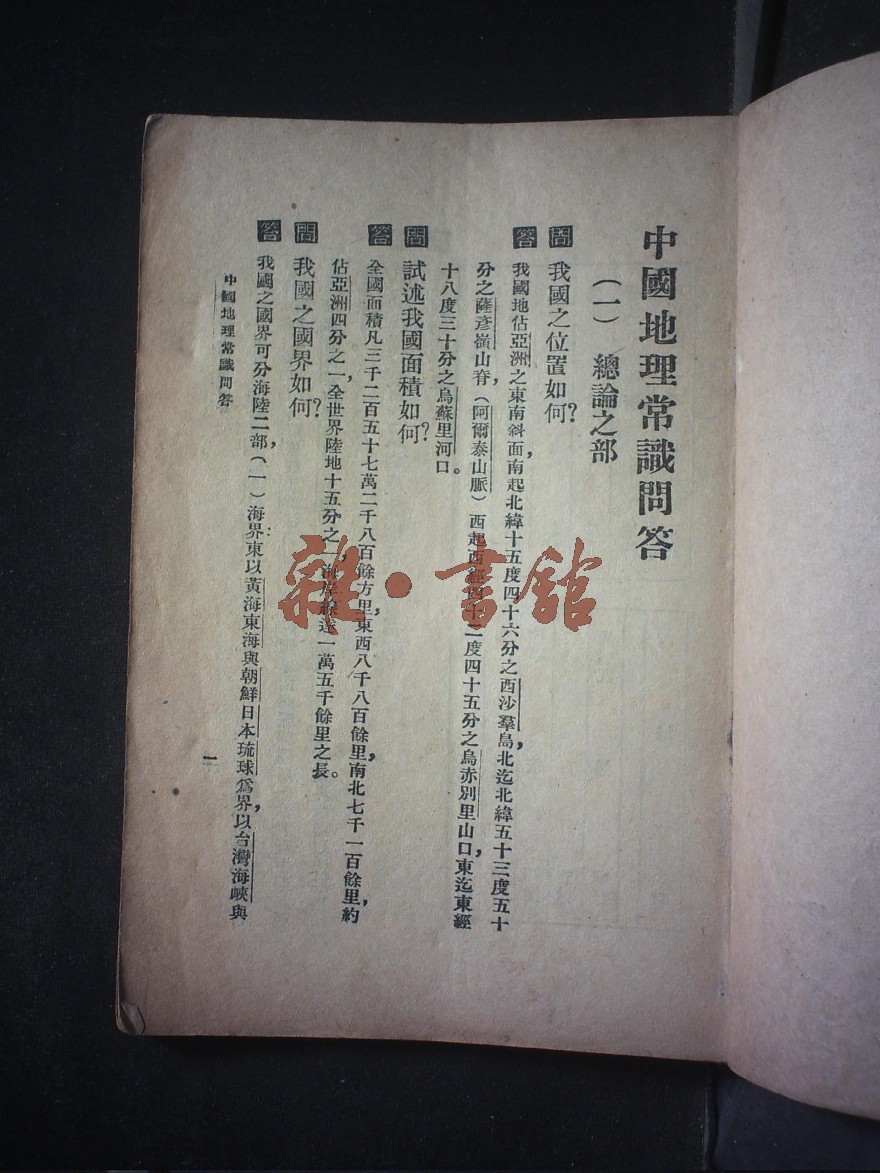 中國地理常識問答
（一）　總論之部
問 我國之位置如何？
答 我國地佔亞洲之東南斜面，南起北緯十五度四十六分之西沙羣島，北迄北緯五十三度五十
分之薩彥嶺山脊（阿爾泰山脈）西起西經四十二度四十五分之烏赤別里山口，東迄東經
十八度三十分之烏蘇里河口。
問 試述我國面積如何？
答 全國面積凡三千二百五十七萬二千八百餘方里，東西八千八百餘里，南北七千一百餘里，約
佔亞洲四分之一，全世界陸地十五分之一，海岸線達一萬五千餘里之長。
問 我國之國界如何？
答 我國之國界可分海陸二部，（一）海界：東以黃海東海與朝鮮日本琉球爲界，以台灣海峽與
中國地理常識問答
一
雜·書館